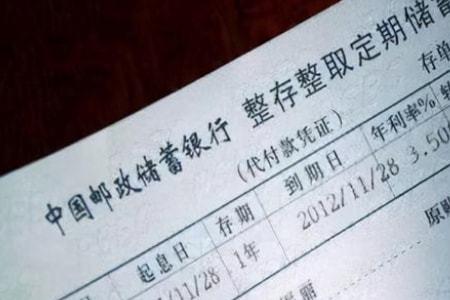 中国邮政储蓄银行 整存整取定期储蓄
存单
(代付款凭证)
起息日 存期 到期日 年利率% 转
11/28 1年 2012/11/28 3.50
原账